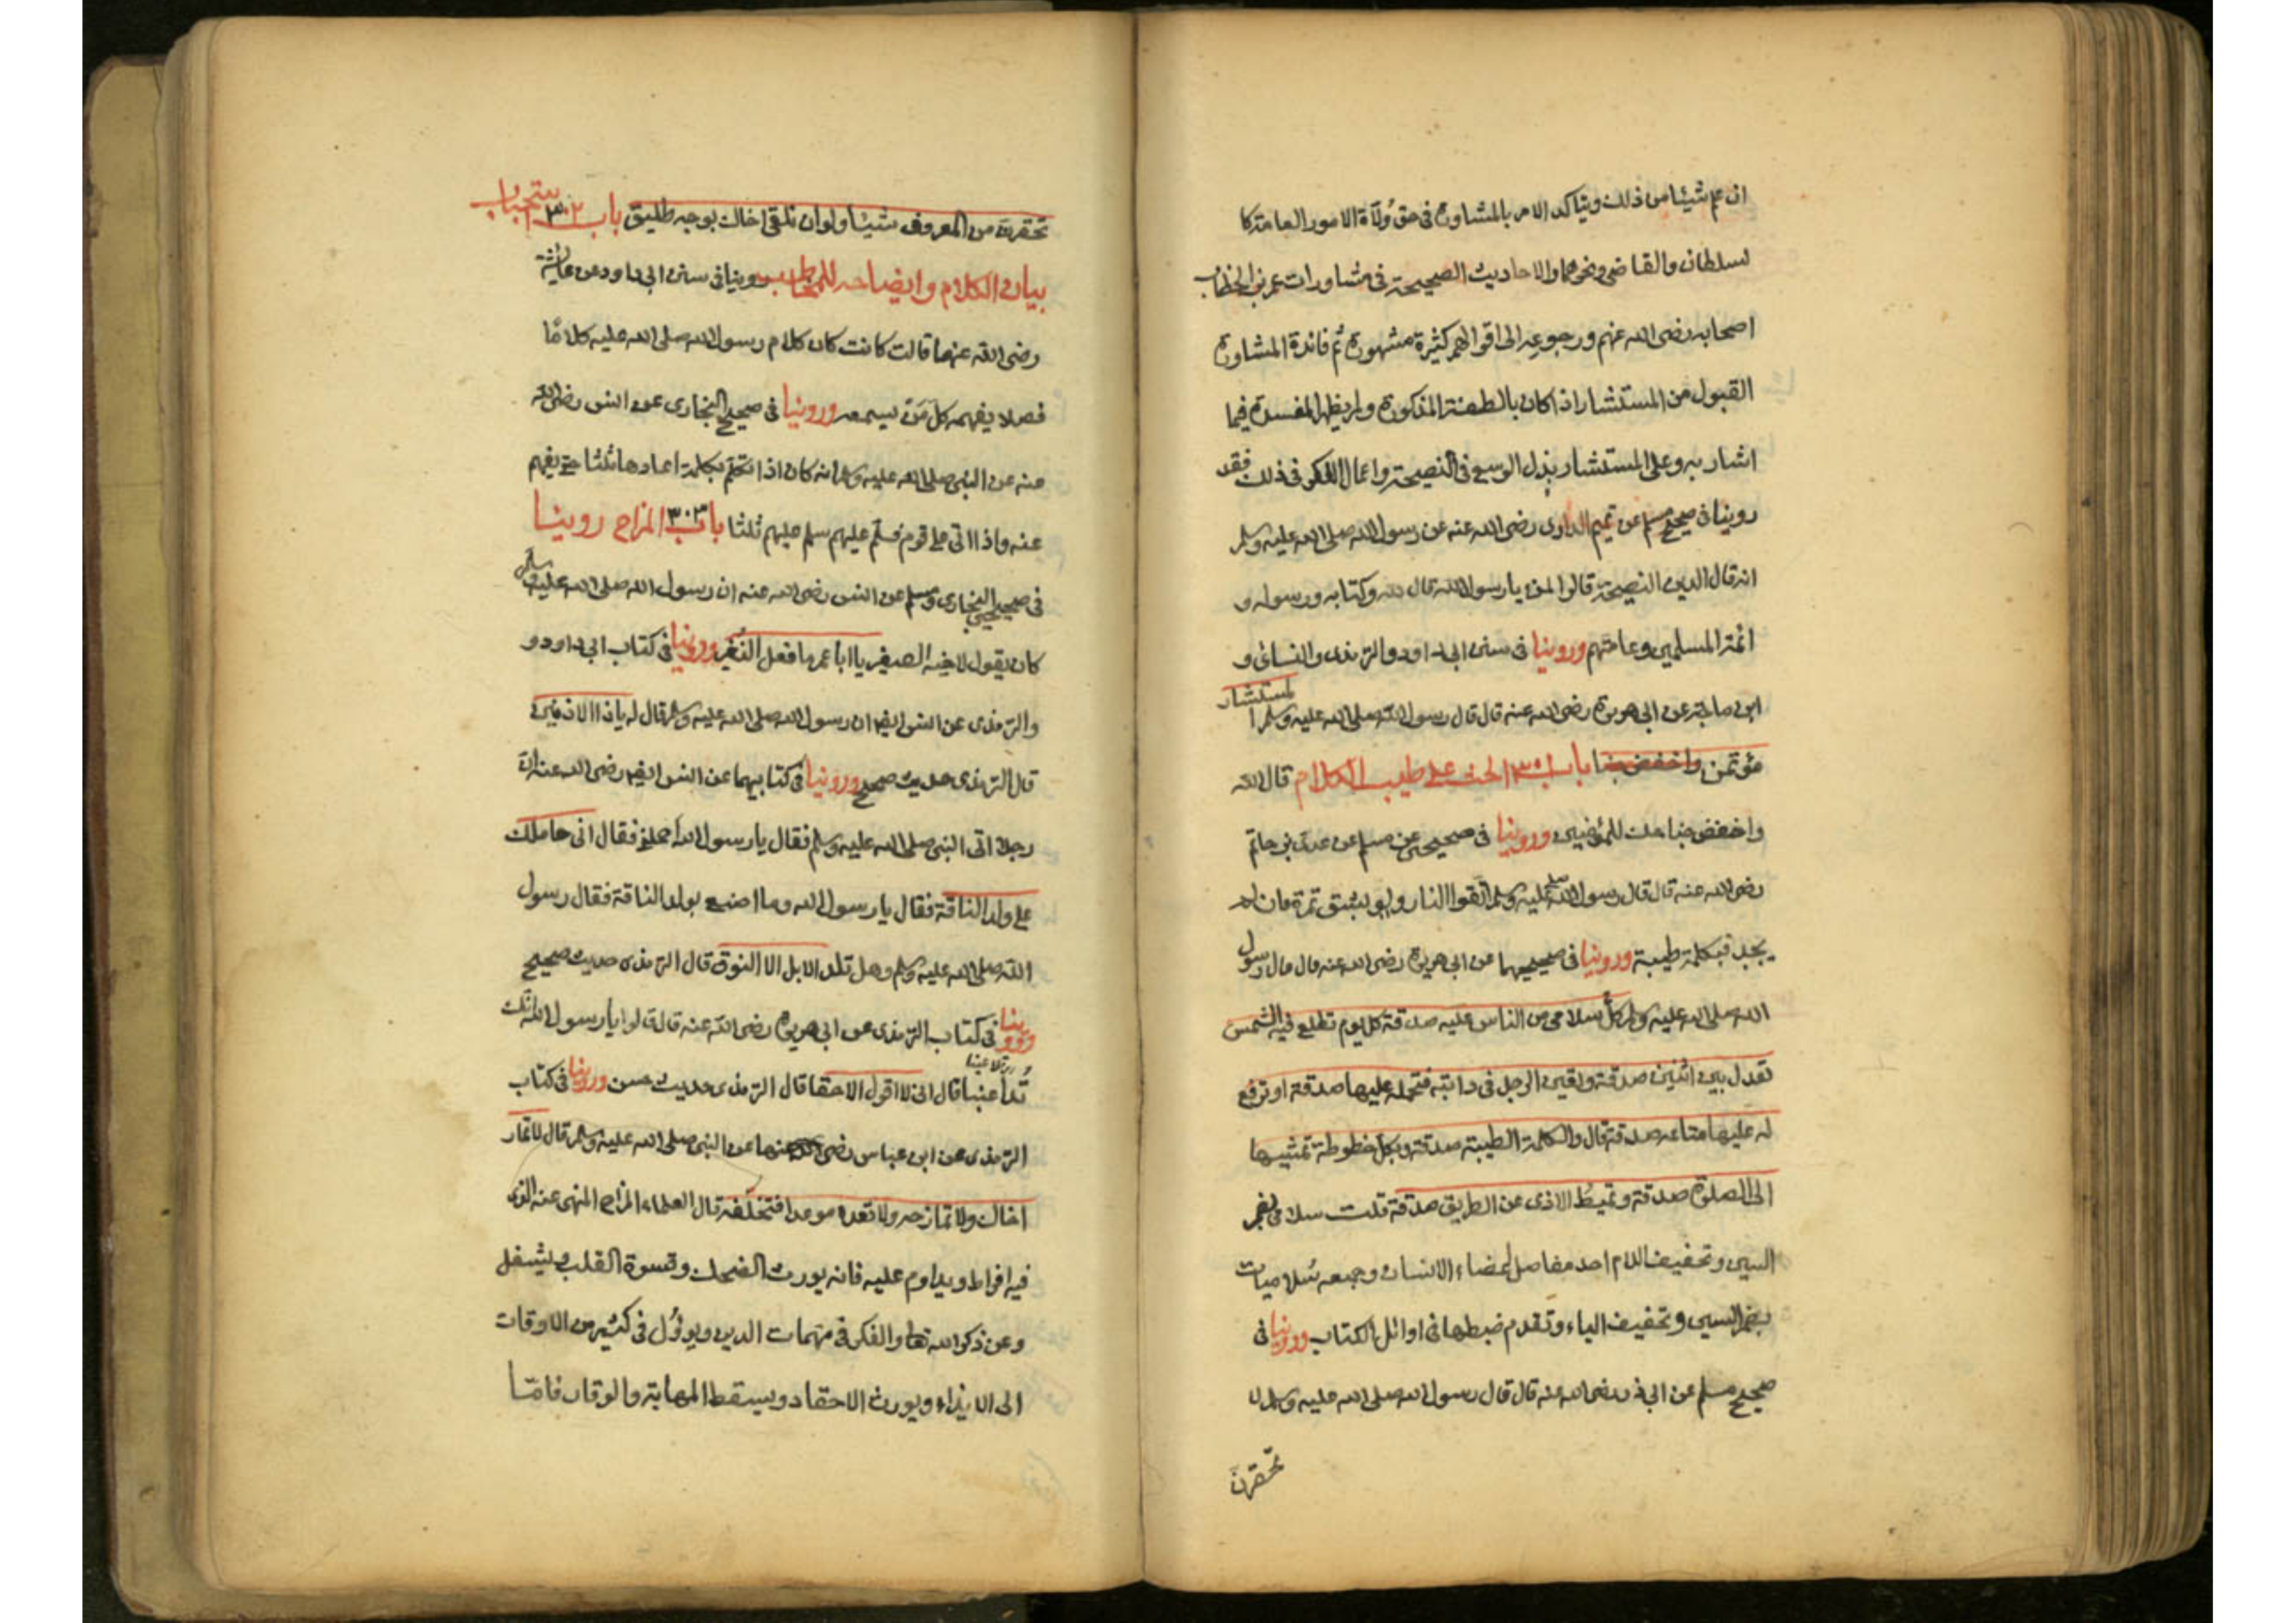 ان علم شيئا من ذلك ويتاكد الامر بالمشاورة فى حق وُلَاة الامور العامة كا
لسلطان والقاضى ونحوهما والاحاديث الصحيحة فى مشاورات عمر بن الخطاب
اصحابه رضى الله عنهم ورجوعه الى اقوالهم كثيرة مشهورة ثم فائدة المشاورة
القبول من المستشار اذا كان بالصفة المذكورة ولم يظهر المفسدة فيما
اشار به وعلى المستشار بذل الوسع فى النصيحة واعمال الفكر فى ذلك فقد
روينا فى صحيح مسلم عن تميم الدارى رضى الله عنه عن رسول الله صلى الله عليه وسلم
انه قال الدين النصيحة قالوا لمن يا رسول الله قال لله وكتابه ورسوله و
ائمة المسلمين وعامتهم وروينا فى سنن ابى داود والترمذى والنسائى و
ابن ماجة عن ابى هريرة رضى الله عنه قال قال رسول الله صلى الله عليه وسلم المستشار
مؤتمن واخفض جنا باب ٣٠١ الحث على طيب الكلام قال الله
واخفض جناحك للمؤمنين وروينا فى صحيحى مسلم عن عدى بن حاتم
رضى الله عنه قال قال رسول الله صلى عليه وسلم اتقوا النار ولو بشق تمرة فان لم
يجد فبكلمة طيبة وروينا فى صحيحيهما عن ابى هريرة رضى الله عنه قال قال رسول
الله صلى الله عليه وسلم كل سلامى من الناس عليه صدقة كل يوم تطلع فيه الشمس
تعدل بين اثنين صدقة وتعين الرجل فى دابته فتحمله عليها صدقة او ترفع
له عليها متاعه صدقة قال والكلمة الطيبة صدقة وبكل خطوطة تمشيها
الى الصلوة صدقة وتميط الاذى عن الطريق صدقة قلت سلامى بضم
السين وتخفيف اللام احد مفاصل اعضاء الانسان وجمعه سُلاميات
بضم السين وتخفيف الياء وتقدم ضبطها فى اوائل الكتاب وروينا فى
صحيح مسلم عن ابى ذر رضى الله عنه قال قال رسول الله صلى الله عليه وسلم لا
تحقرن
تحقرن من المعروف شيئا ولو ان تلقى اخاك بوجه طليق باب ٣٠٢ استحباب
بيان الكلام وايضاحه للمخاطب روينا فى سنن ابى داود عن عائشة
رضى الله عنها قالت كانت كان كلام رسول الله صلى الله عليه كلامًا
فصلا يفهمه كل من يسمعه وروينا فى صحيح البخارى عن انس رضى الله
عنه عن النبى صلى الله عليه وسلم انه كان اذا تكلم بكلمة اعادها ثلثا حتى يفهم
عنه واذا اتى على قوم فسلم عليهم سلم عليهم ثلثا باب ٣٠٣ المزاح روينا
فى صحيحى البخارى ومسلم عن انس رضى الله عنه ان رسول الله صلى الله عليه وسلم
كان يقول لاخيه الصغير يا ابا عمر ما فعل النغير وروينا فى كتاب ابى داود و
والترمذى عن انس ايضا ان رسول الله صلى الله عليه وسلم قال له يا ذا الاذنين
قال الترمذى حديث صحيح وروينا فى كتابيهما عن انس ايضا رضى الله عنه ان
رجلا اتى النبى صلى الله عليه وسلم فقال يا رسول الله احملنى فقال انى حاملك
على ولد الناقة فقال يا رسول الله وما اصنع بولد الناقة فقال رسول
الله صلى الله عليه وسلم وهل تلد الابل الا النوق قال الترمذى حديث صحيح
وروينا فى كتاب الترمذى عن ابى هريرة رضى الله عنه قال قالوا يا رسول الله انك
تداعبنا قال انى لا اقول الا حقا قال الترمذى حديث حسن وروينا فى كتاب
الترمذى عن ابن عباس رضى الله عنهما عن النبى صلى الله عليه وسلم قال لا تمار
اخاك ولا تمازحه ولا تعده موعدا فتخلفه قال العلماء المزاح المنهى عنه الذى
فيه افراط ويداوم عليه فانه يورث الضحك وقسوة القلب ويشغل
وعن ذكر الله تعالى والفكر فى مهمات الدين ويوئول فى كثير من الاوقات
الى الايذاء ويورث الاحقاد ويسقط المهابة والوقار فامّا